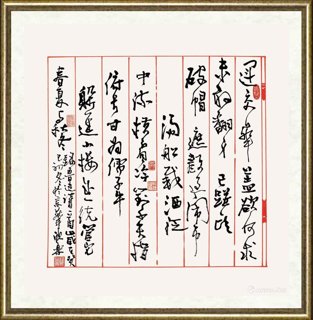 运交华盖欲何求
未敢翻身已碰头
破帽遮颜过闹市
漏船载酒泛
中流横眉冷对千夫指
俯首甘为孺子牛
躲进小楼成一统管它
春夏与秋冬